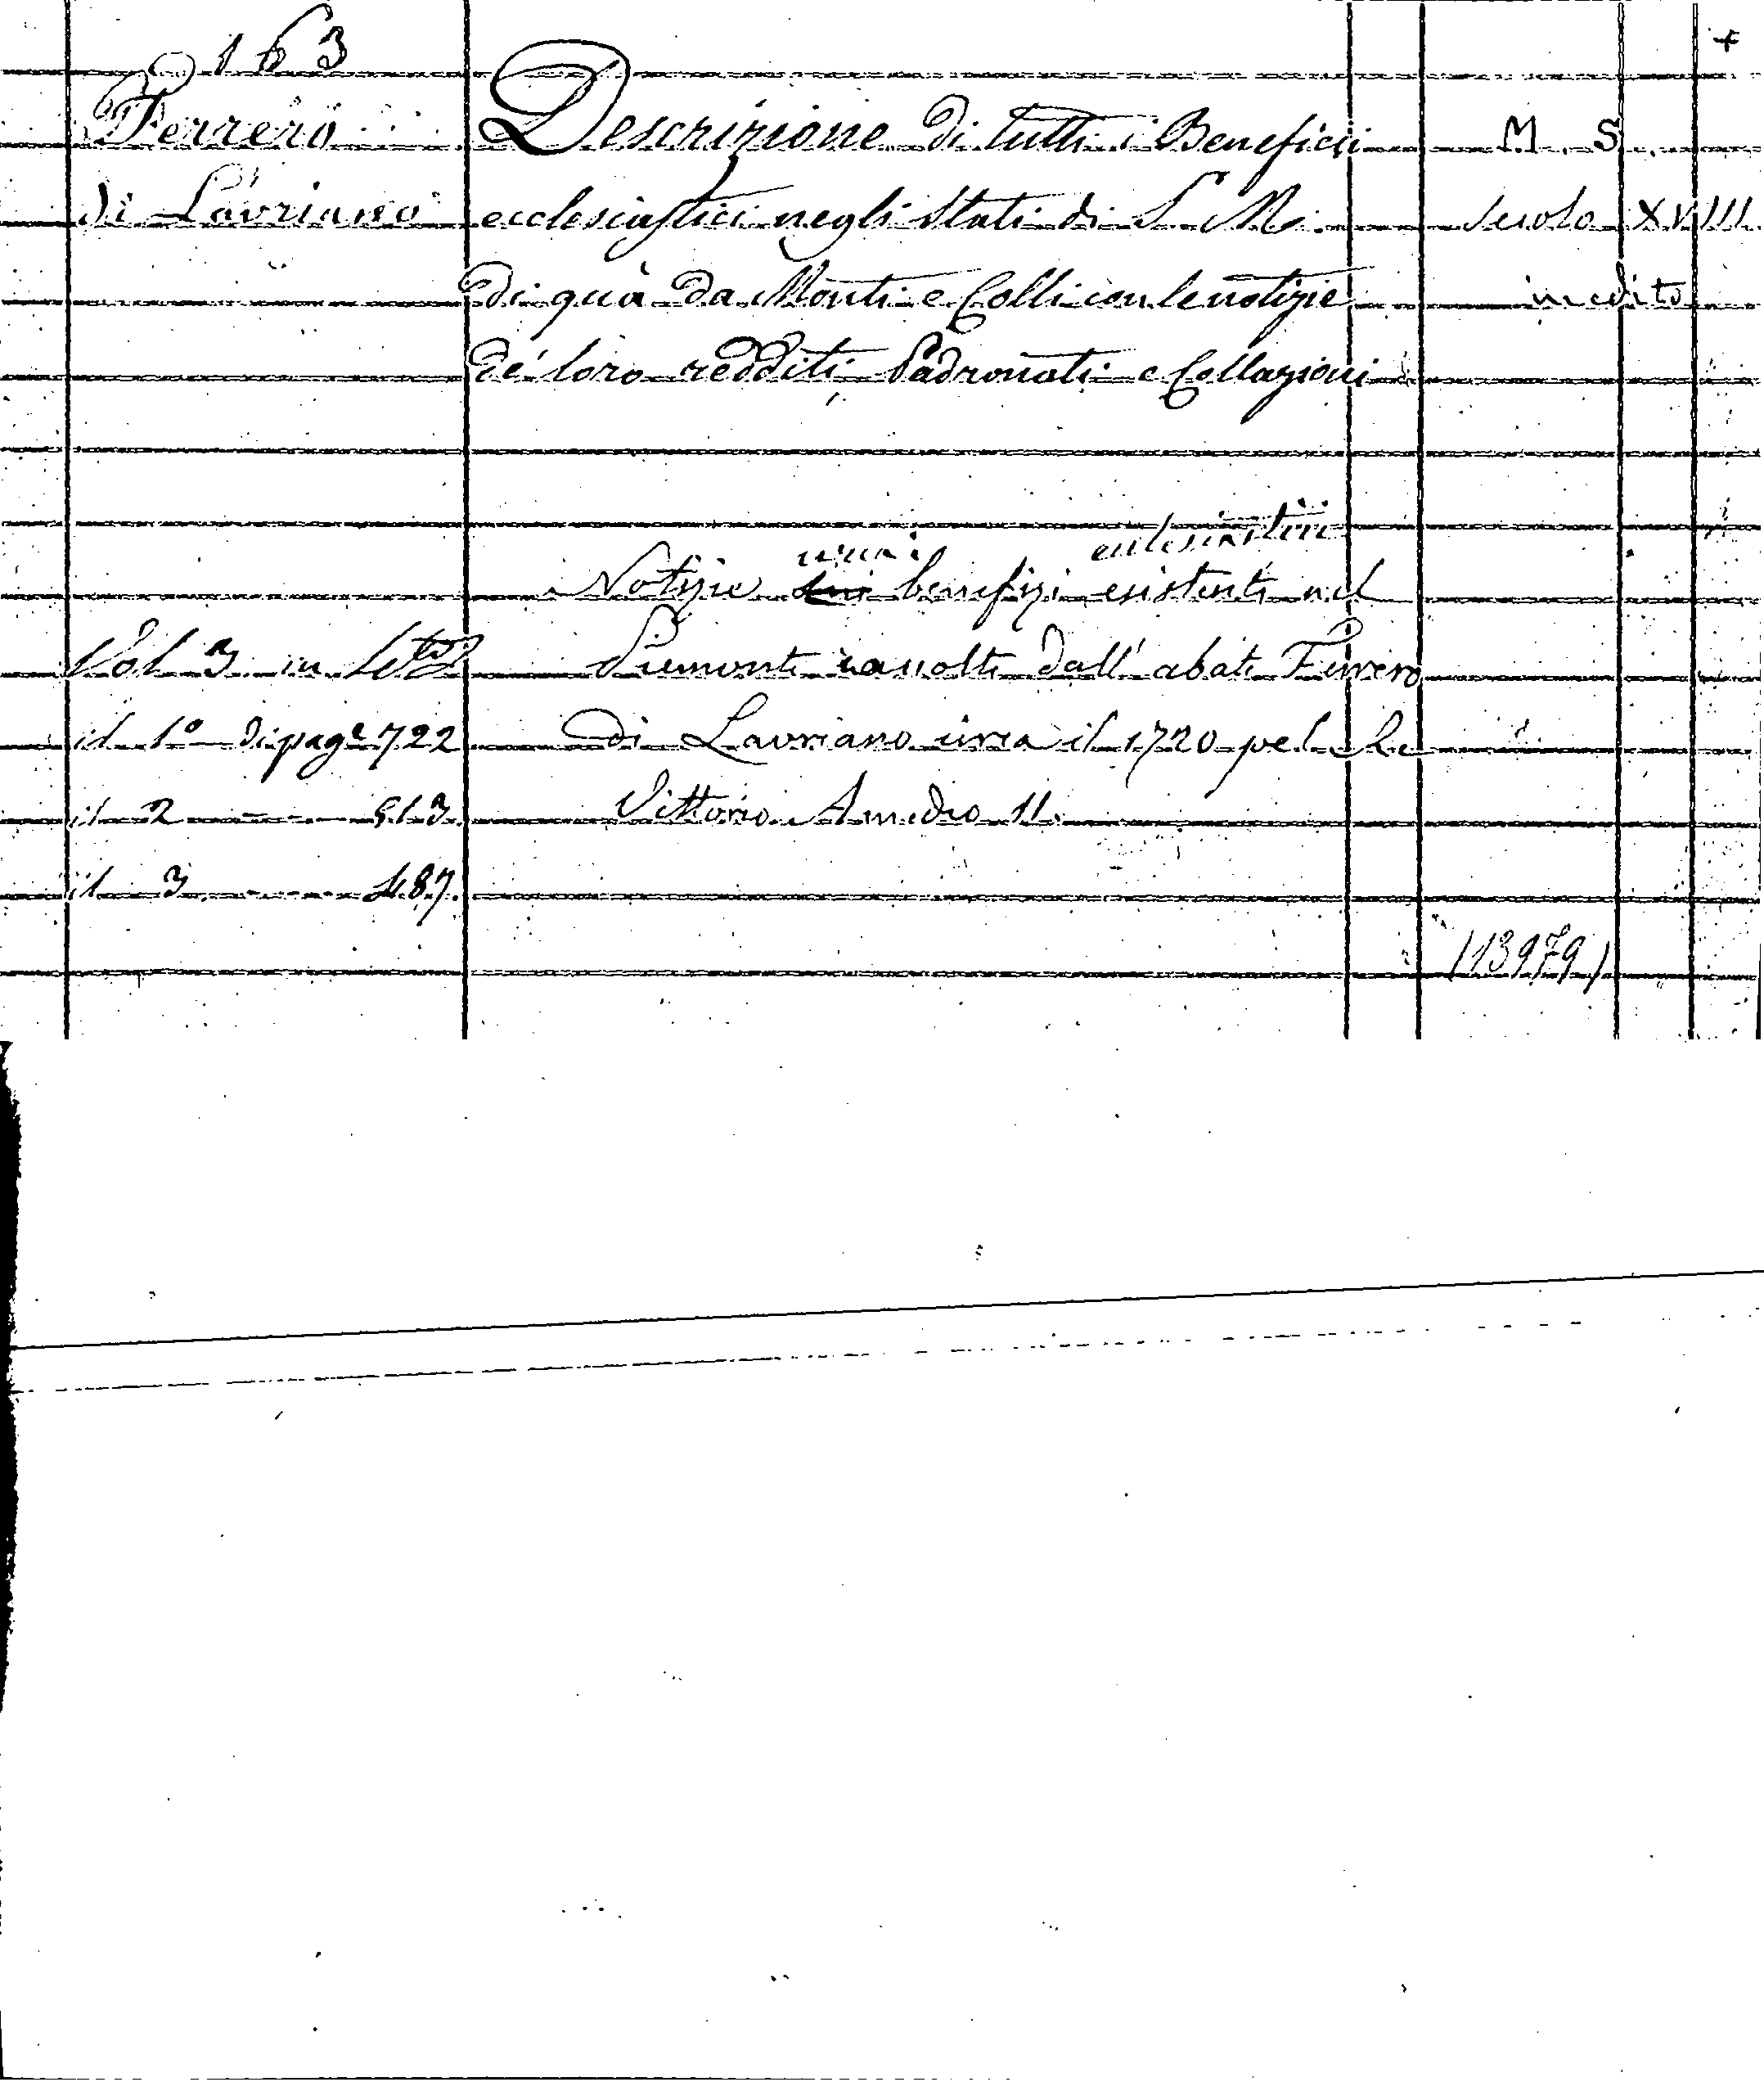 163
+
Ferrero
di Lavriano
Descrizione di tutti i Beneficii
ecclesiastici negli Stati di S. M.
di quà da Monti e Colli con le notizie
de' loro redditi Padronati e Collazioni
M. S.
Secolo XVIII
inedito
ecclesiastici
Notizie benefizi esistenti nel
Piemonte racolte dall' abate Ferrero
di Lavriano circa il 1720 pel Re
Vittorio Amedeo II.
Vol 3 in
il 1º di page 722
il 2 — 513
il 3 — 487
(13979)